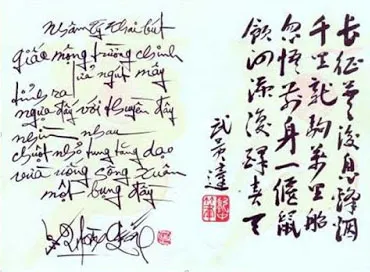 Nhâm Tý khai bút
giấc mộng trường chinh
vừa ngút mây
tỉnh ra
ngựa đấy với thuyền đây
nhìn nhau
chuột nhỏ tung tăng dạo
vừa uống sông Xuân
một bụng đầy
長征夢後輕烟
千里龍駒萬里船
忽悟前身一偃鼠
河深復躍春天
武達